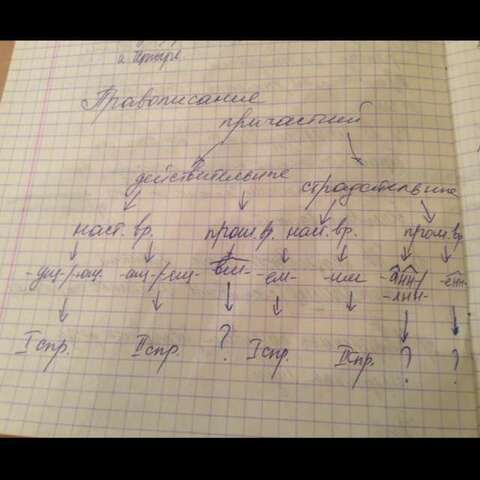 и Игоря.
Правописание
причастий
действительные
страдательные
наст. вр. прош. вр. наст. вр. прош. вр.
-ущ-/-ющ- -ащ-/-ящ- -вш- -ем- -им- -анн-/ -енн-
-янн-
I спр. II спр. ? I спр. II спр. ? ?